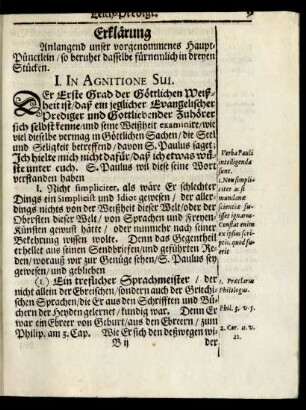 Leich-Predigt. 9
Erklärung
Anlangend unser vorgenommenes Haupt-
Pünctlein / so beruhet dasselbe fürnemlich in dreyen
Stücken.
I. IN AGNITIONE SUI.
DEr Erste Grad der Göttlichen Weiß-
heit ist / daß ein jeglicher Evangelischer
Prediger und Gottliebender Zuhörer
sich selbst kenne und seine Weißheit examinire, wie
viel dieselbe vermag in Göttlichen Sachen / die Seel
und Seligkeit betreffend / davon S. Paulus saget:
Ich hielte mich nicht dafür / daß ich etwas wü-
ste unter euch. S. Paulus wil diese seine Wort
verstanden haben
1. Nicht simpliciter, als wäre Er schlechter
Dings ein simplicist und Idiot gewesen / der aller-
dings nichts von der Weißheit dieser Welt / oder der
Obersten dieser Welt / von Sprachen und Freyen
Künsten gewust hätte / oder nunmehr nach seiner
Bekehrung wissen wolte. Denn das Gegentheil
erhellet aus seinen Sendbriefen / und geführten Re-
den / worauß wir zur Genüge sehen / S. Paulus sey
gewesen / und geblieben
(1.) Ein treflicher Sprachmeister / der
nicht allein der Ebreischen / sondern auch der Griechi-
schen Sprachen / die Er aus den Schrifften und Bü-
chern der Heyden gelernet / kundig war. Denn Er
war ein Ebreer von Geburt / aus den Ebreern / zum
Philip. am 3. Cap. Wie Er sich den deßwegen wi-
B ij
der
Verba Pauli
intelligenda
sunt.
1. Non simpli-
citer ac si
mundanæ
scientiæ fu-
isset ignarus.
Constat enim
ex ipsius scri-
ptis, quod fue-
rit
1. Præclarus
Philologus.
Phil. 3. v. 5.
2. Cor. 11. v.
22.